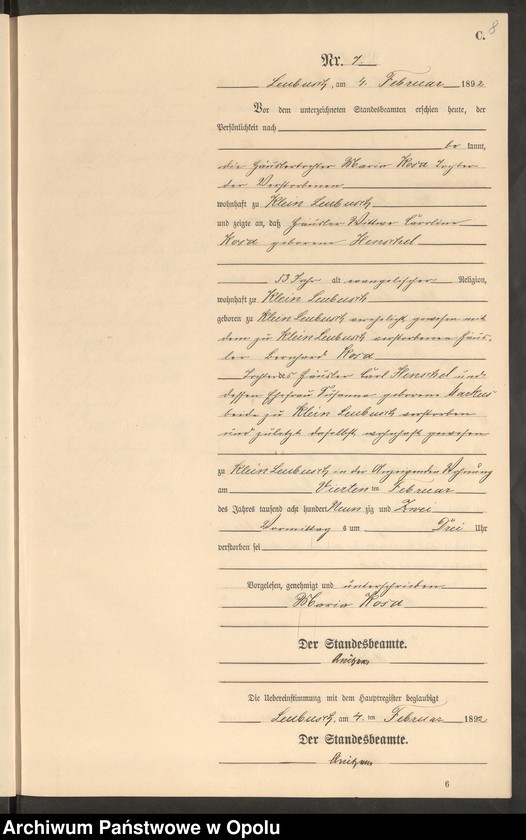 C.
8
Nr. 7.
Leubusch, am 4. Februar 1892
Vor dem unterzeichneten Standesbeamten erschien heute, der
Persönlichkeit nach
be kannt,
die Häuslertochter Maria Kosa Tochter
der Verstorbenen
wohnhaft zu Klein Leubusch
und zeigte an, daß Häusler Wittwe Caroline
Kosa geborene Henschel
53 Jahr alt evangelischer Religion,
wohnhaft zu Klein Leubusch
geboren zu Klein Leubusch verehelicht gewesen mit
dem zu Klein Leubusch verstorbenen Häus-
ler Bernhard Kosa
Tochter des Häusler Carl Henschel und
dessen Ehefrau Susanna geborene Markus
beide zu Klein Leubusch verstorben
und zuletzt daselbst wohnhaft gewesen
zu Klein Leubusch in der Anzeigenden Wohnung
am Vierten ten Februar
des Jahres tausend acht hundert Neun zig und Zwei
Vormittag s um Drei Uhr
verstorben sei
Vorgelesen, genehmigt und unterschrieben
Maria Kosa
Der Standesbeamte.
Die Uebereinstimmung mit dem Hauptregister beglaubigt
Leubusch, am 4. ten Februar 1892
Der Standesbeamte.
6
Archiwum Państwowe w Opolu